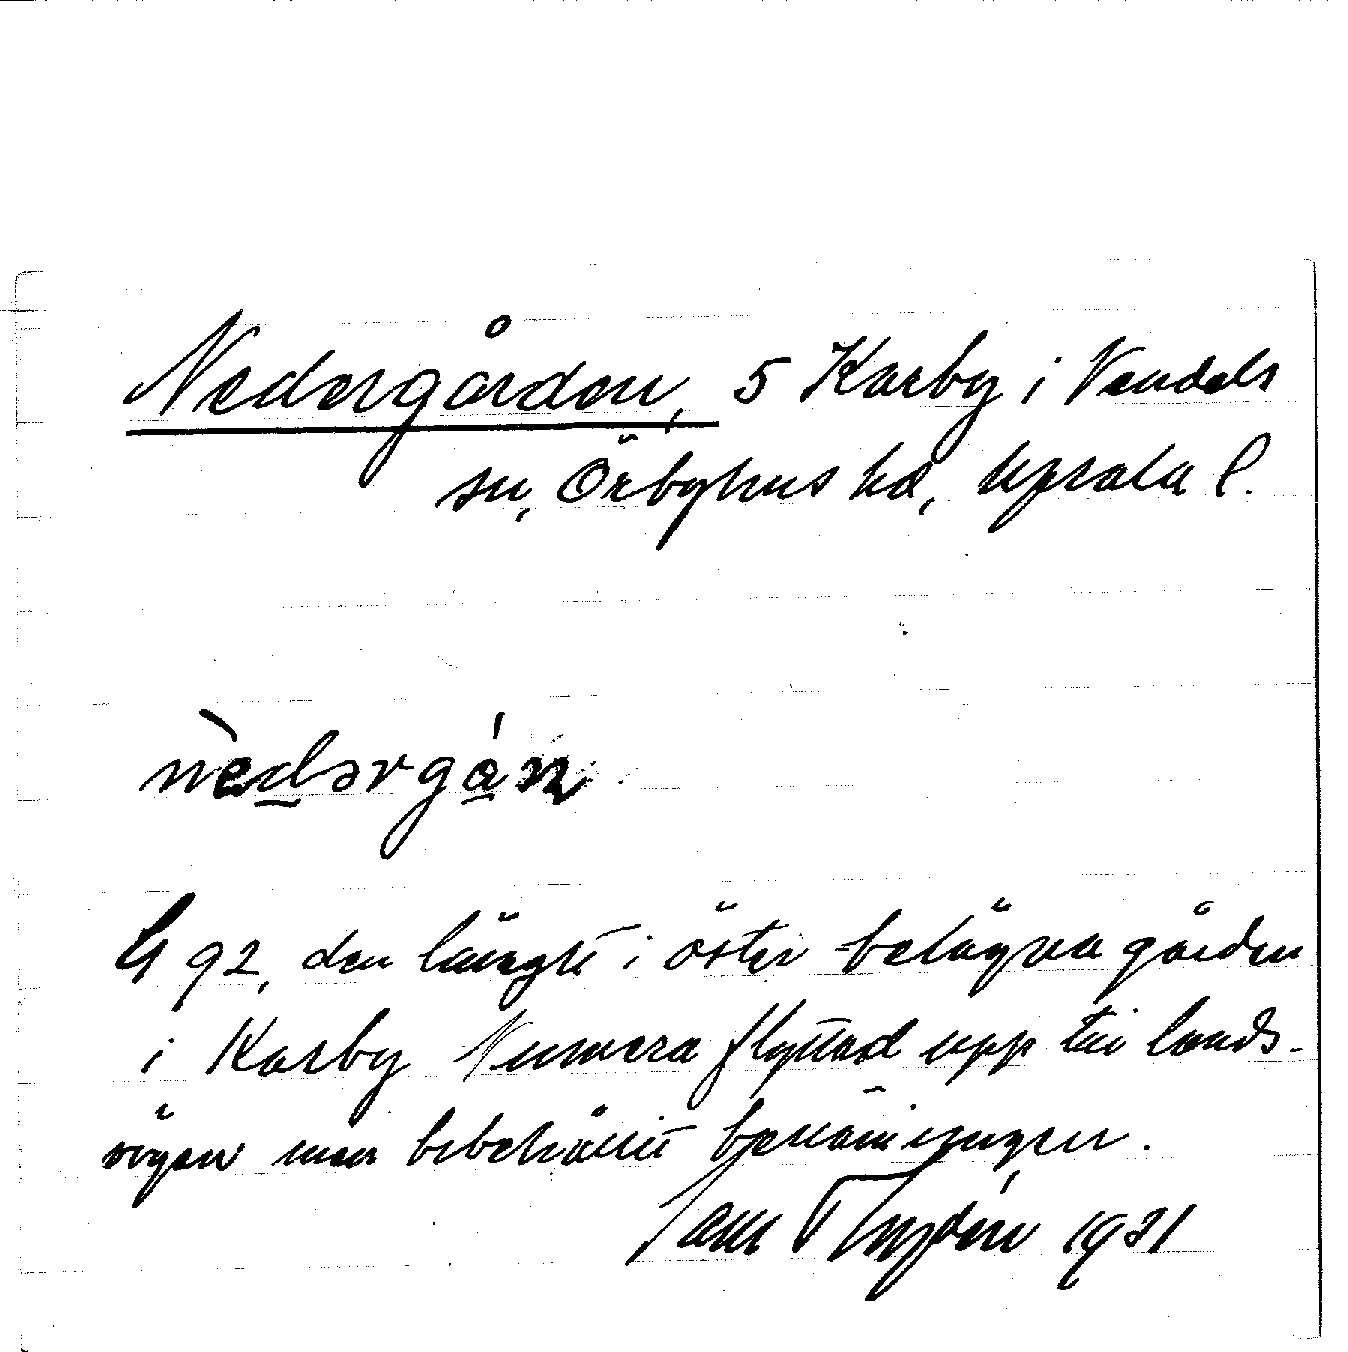 Nedergården, 5 Karby i Vendels
sn, Örbyhus hd, Upsala l.
nèdərgán
G 92, den längst i öster belägna gården
i Karby Numera flyttad upp till lands-
vägen men bibehållit benämningen.
1931